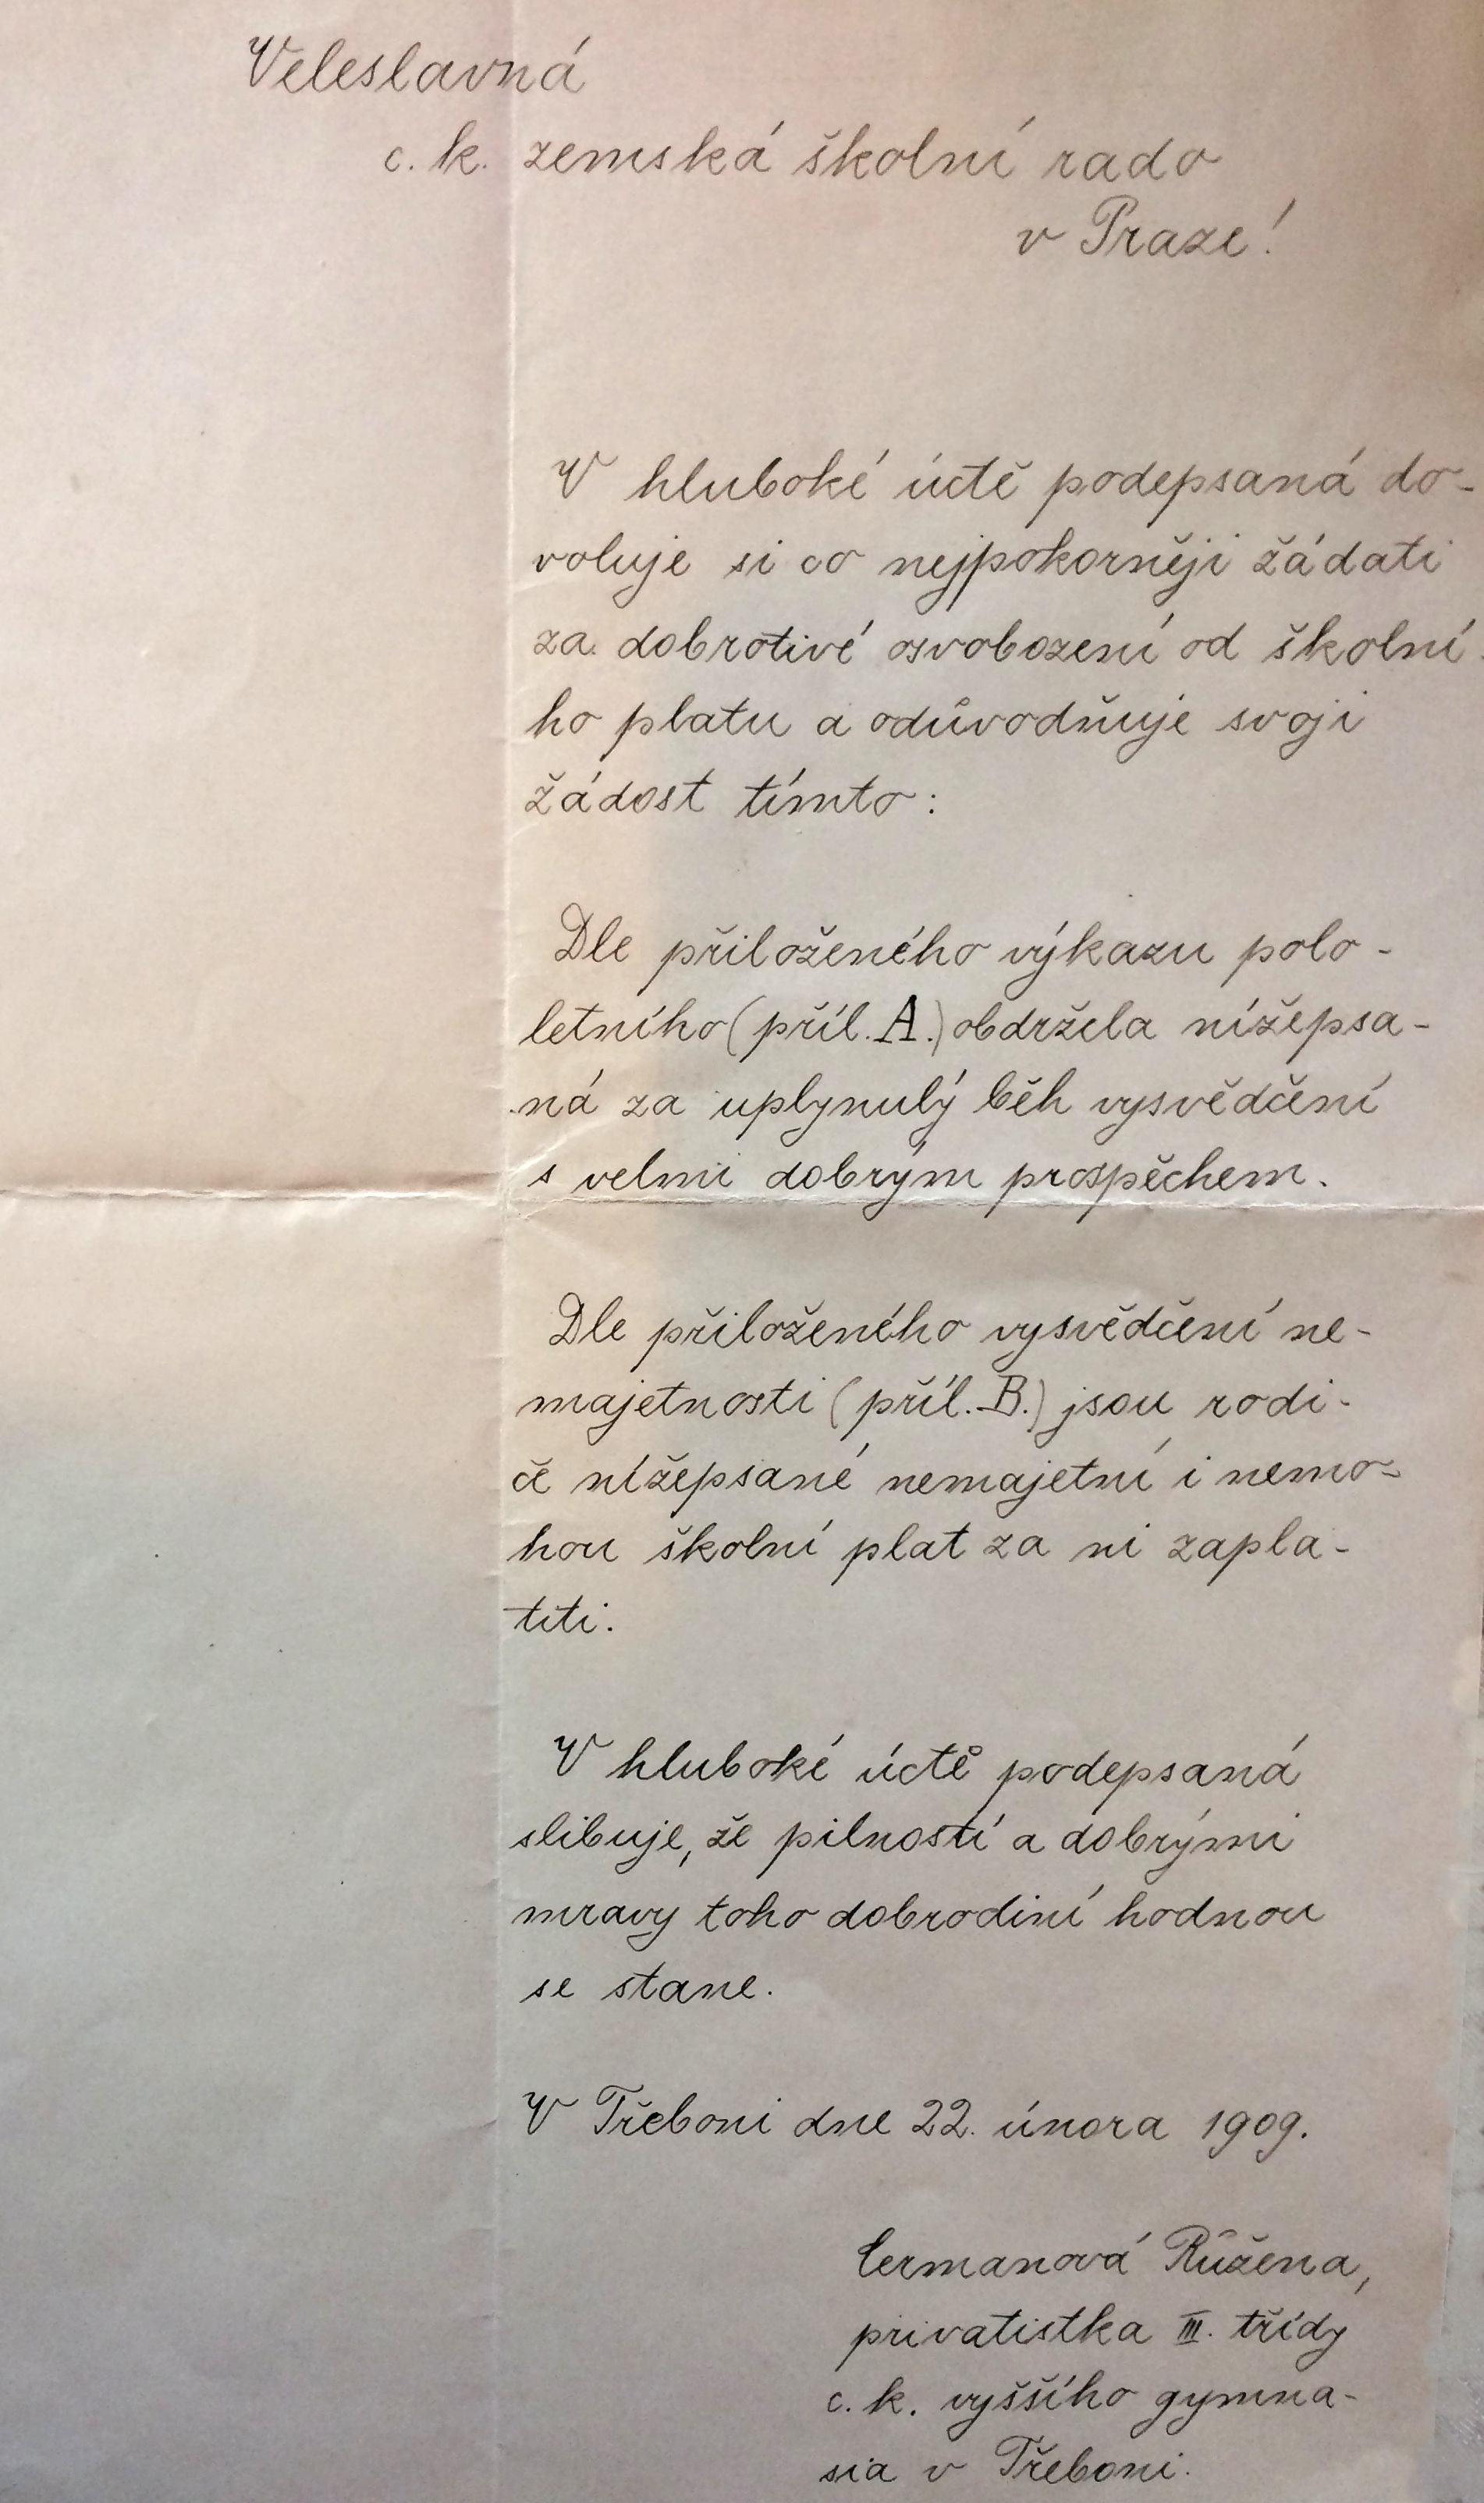 Veleslavná
c. k. zemská školní rado
v Praze!
V hluboké úctě podepsaná do-
voluje si co nejpokorněji žádati
za dobrotivé osvobození od školní
ho platu a odůvodňuje svoji
žádost tímto:
Dle přiloženého výkazu polo-
letního (příl. A.) obdržela nížepsa-
ná za uplynulý běh vysvědčení
s velmi dobrým prospěchem.
Dle přiloženého vysvědčení ne-
majetnosti (příl. B.) jsou rodi-
če nížepsané nemajetní i nemo-
hou školní plat za ni zapla-
titi.
V hluboké úctě podepsaná
slibuje, že pilností a dobrými
mravy toho dobrodiní hodnou
se stane.
V Třeboni dne 22. února 1909.
Cermanová Růžena,
privatistka III. třídy
c. k. vyššího gymna-
sia v Třeboni.